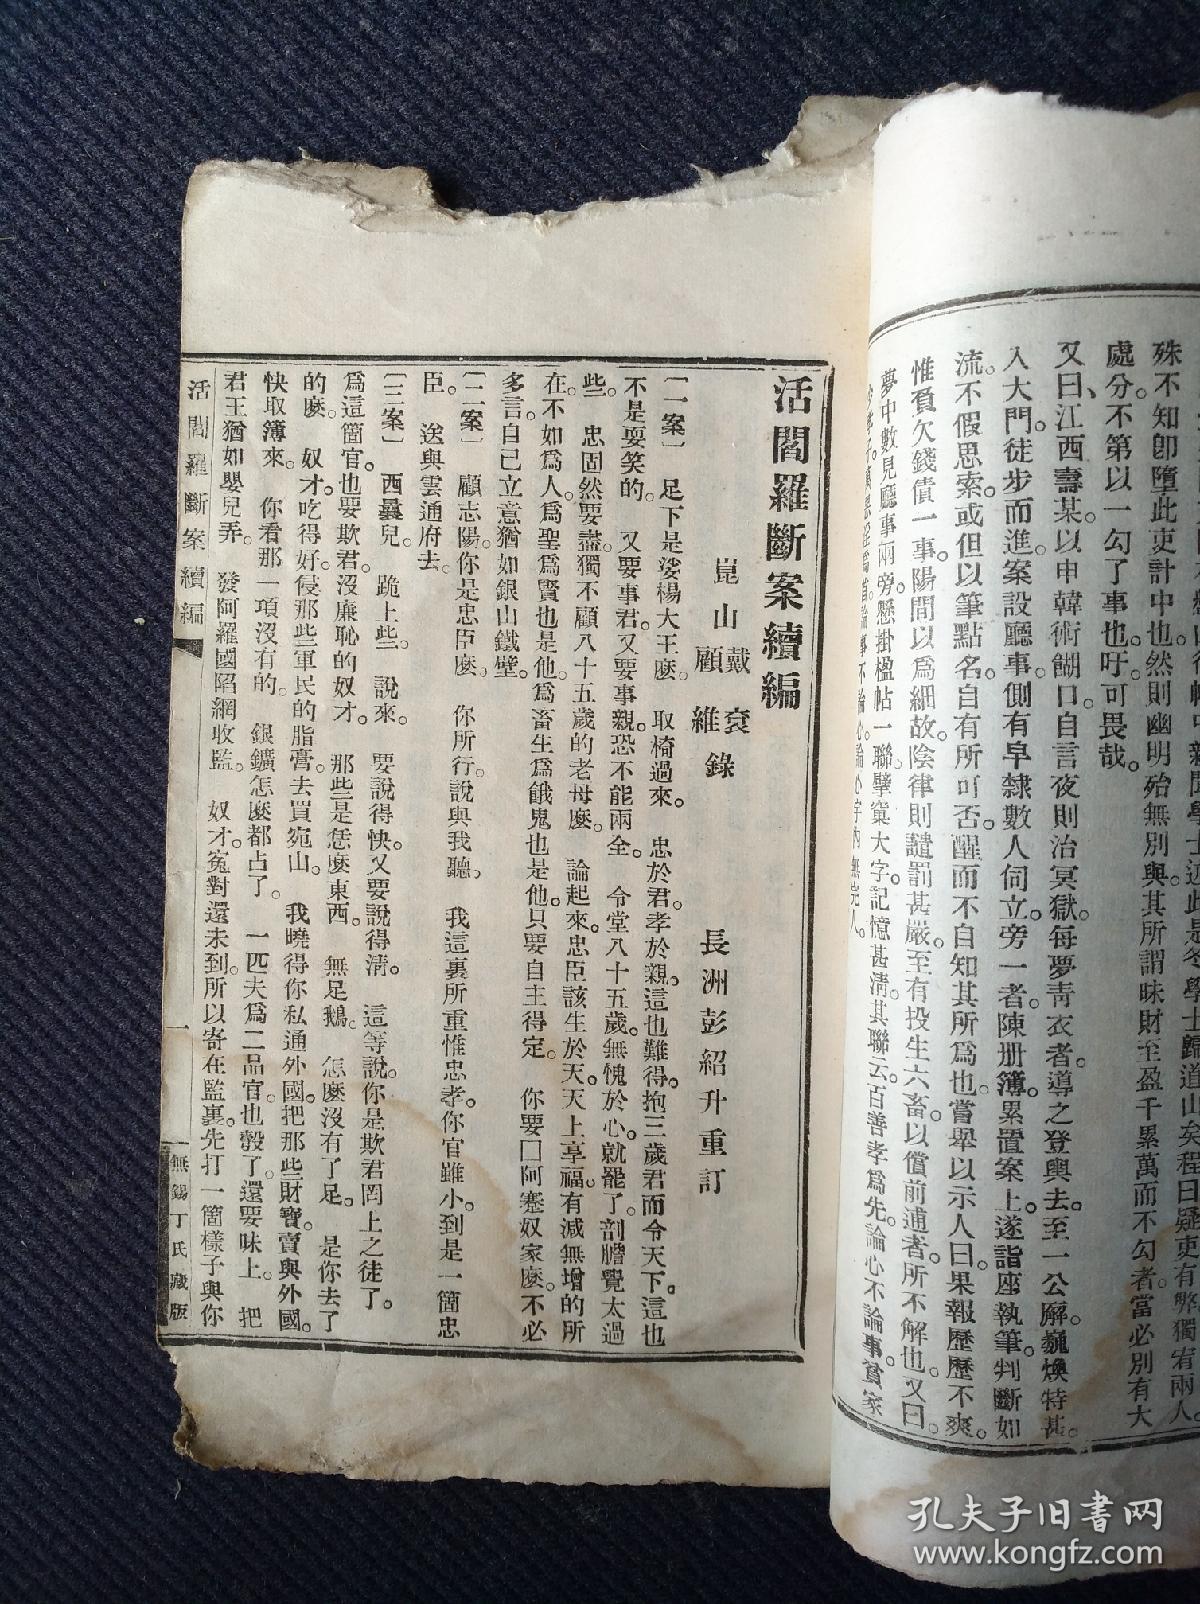 殊不知卽墮此吏計中也。然則幽明殆無別與。其所謂昧財至盈千累萬而不勾者。當必別有大
處分。不第以一勾了事也。吁。可畏哉。
又曰、江西壽某。以申韓術餬口。自言夜則治冥獄。每夢靑衣者。導之登輿去。至一公廨。巍煥特甚。
入大門。徒步而進。案設廳事。側有皁隸數人伺立。旁一者。陳册簿。累置案上。遂詣座執筆。判斷如
流。不假思索。或但以筆點名。自有所可否。醒而不自知其所爲也。嘗舉以示人曰。果報歷歷不爽。
惟負欠錢債一事。陽間以爲細故。陰律則譴罰甚嚴。至有投生六畜。以償前逋者。所不解也。又曰。
夢中數見廳事兩旁。懸掛楹帖一聯。擘窠大字。記憶甚淸。其聯云。百善孝爲先。論心不論事。貧家
活閻羅斷案續編
崑山戴袞
顧維錄
長洲彭紹升重訂
〔一案〕 足下是婆楊大王麽。 取椅過來。 忠於君。孝於親。這也難得。抱三歲君而令天下。這也
不是耍笑的。 又要事君。又要事親。恐不能兩全。 令堂八十五歲。無愧於心就罷了。剖膽覺太過
些。 忠固然要盡。獨不顧八十五歲的老母麽。 論起來。忠臣該生於天。天上享福。有減無增的所
在。不如爲人。爲聖爲賢也是他。爲畜生爲餓鬼也是他。只要自主得定。 你要囗阿蹇奴家麽。不必
多言。自己立意猶如銀山鐵壁。
〔二案〕 顧志陽。你是忠臣麽。 你所行說與我聽。 我這裏所重惟忠孝。你官雖小。到是一箇忠
臣。 送與雲通府去。
〔三案〕 西曇兒。 跪上些。 說來。 要說得快。又要說得淸。 這等說。你是欺君罔上之徒了。
爲這箇官。也要欺君。沒廉恥的奴才。 那些是恁麽東西。 無足鵝。 怎麽沒有了足。 是你去了
的麽。 奴才。吃得好。侵那些軍民的脂膏。去買宛山。 我曉得你私通外國。把那些財寶。賣與外國。
快取簿來。 你看那一項沒有的。 銀鑛怎麽都占了。 一匹夫爲二品官。也彀了。還要昧上。 把
君王猶如嬰兒弄。 發阿羅國陷網收監。 奴才。冤對還未到。所以寄在監裏。先打一箇樣子與你
活閻羅斷案續編
一
無錫丁氏藏版
孔夫子旧书网
www.kongfz.com